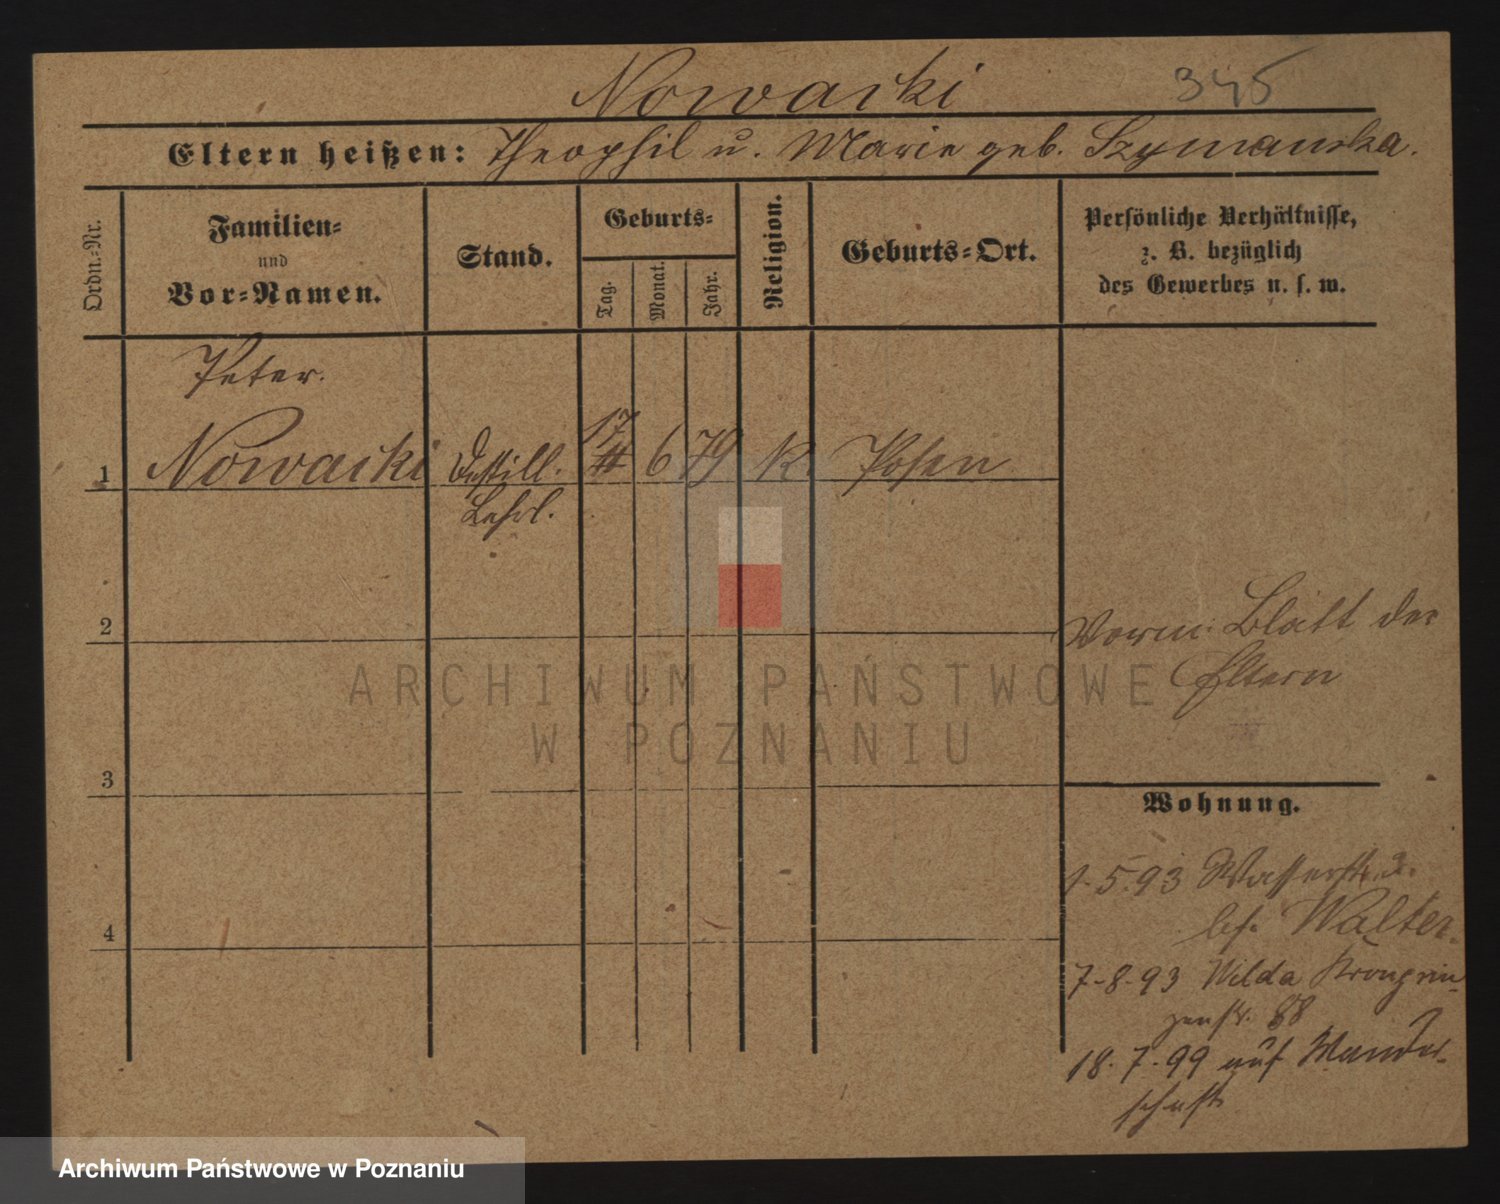 Nowacki 345
Eltern heißen: Theophil u. Marie geb. Szymanska.
Ordn.-Nr.
Familien-
und
Vor-Namen.
Stand.
Geburts-
Tag.
Monat.
Jahr.
Religion.
Geburts-Ort.
Persönliche Verhältnisse,
z. B. bezüglich
des Gewerbes u. s. w.
Peter.
1 Nowacki Destill. 17 6 79 K. Posen
Lehrl.
2
Vorm: Blatt der
Eltern
3
Wohnung.
1.5.93 Wasserstr. 2.
bei Walter.
4
7-8-93 Wilda Kronprin-
zenstr. 68
18.7.99 auf Wander-
schaft
ARCHIWUM PAŃSTWOWE
W POZNANIU
Archiwum Państwowe w Poznaniu